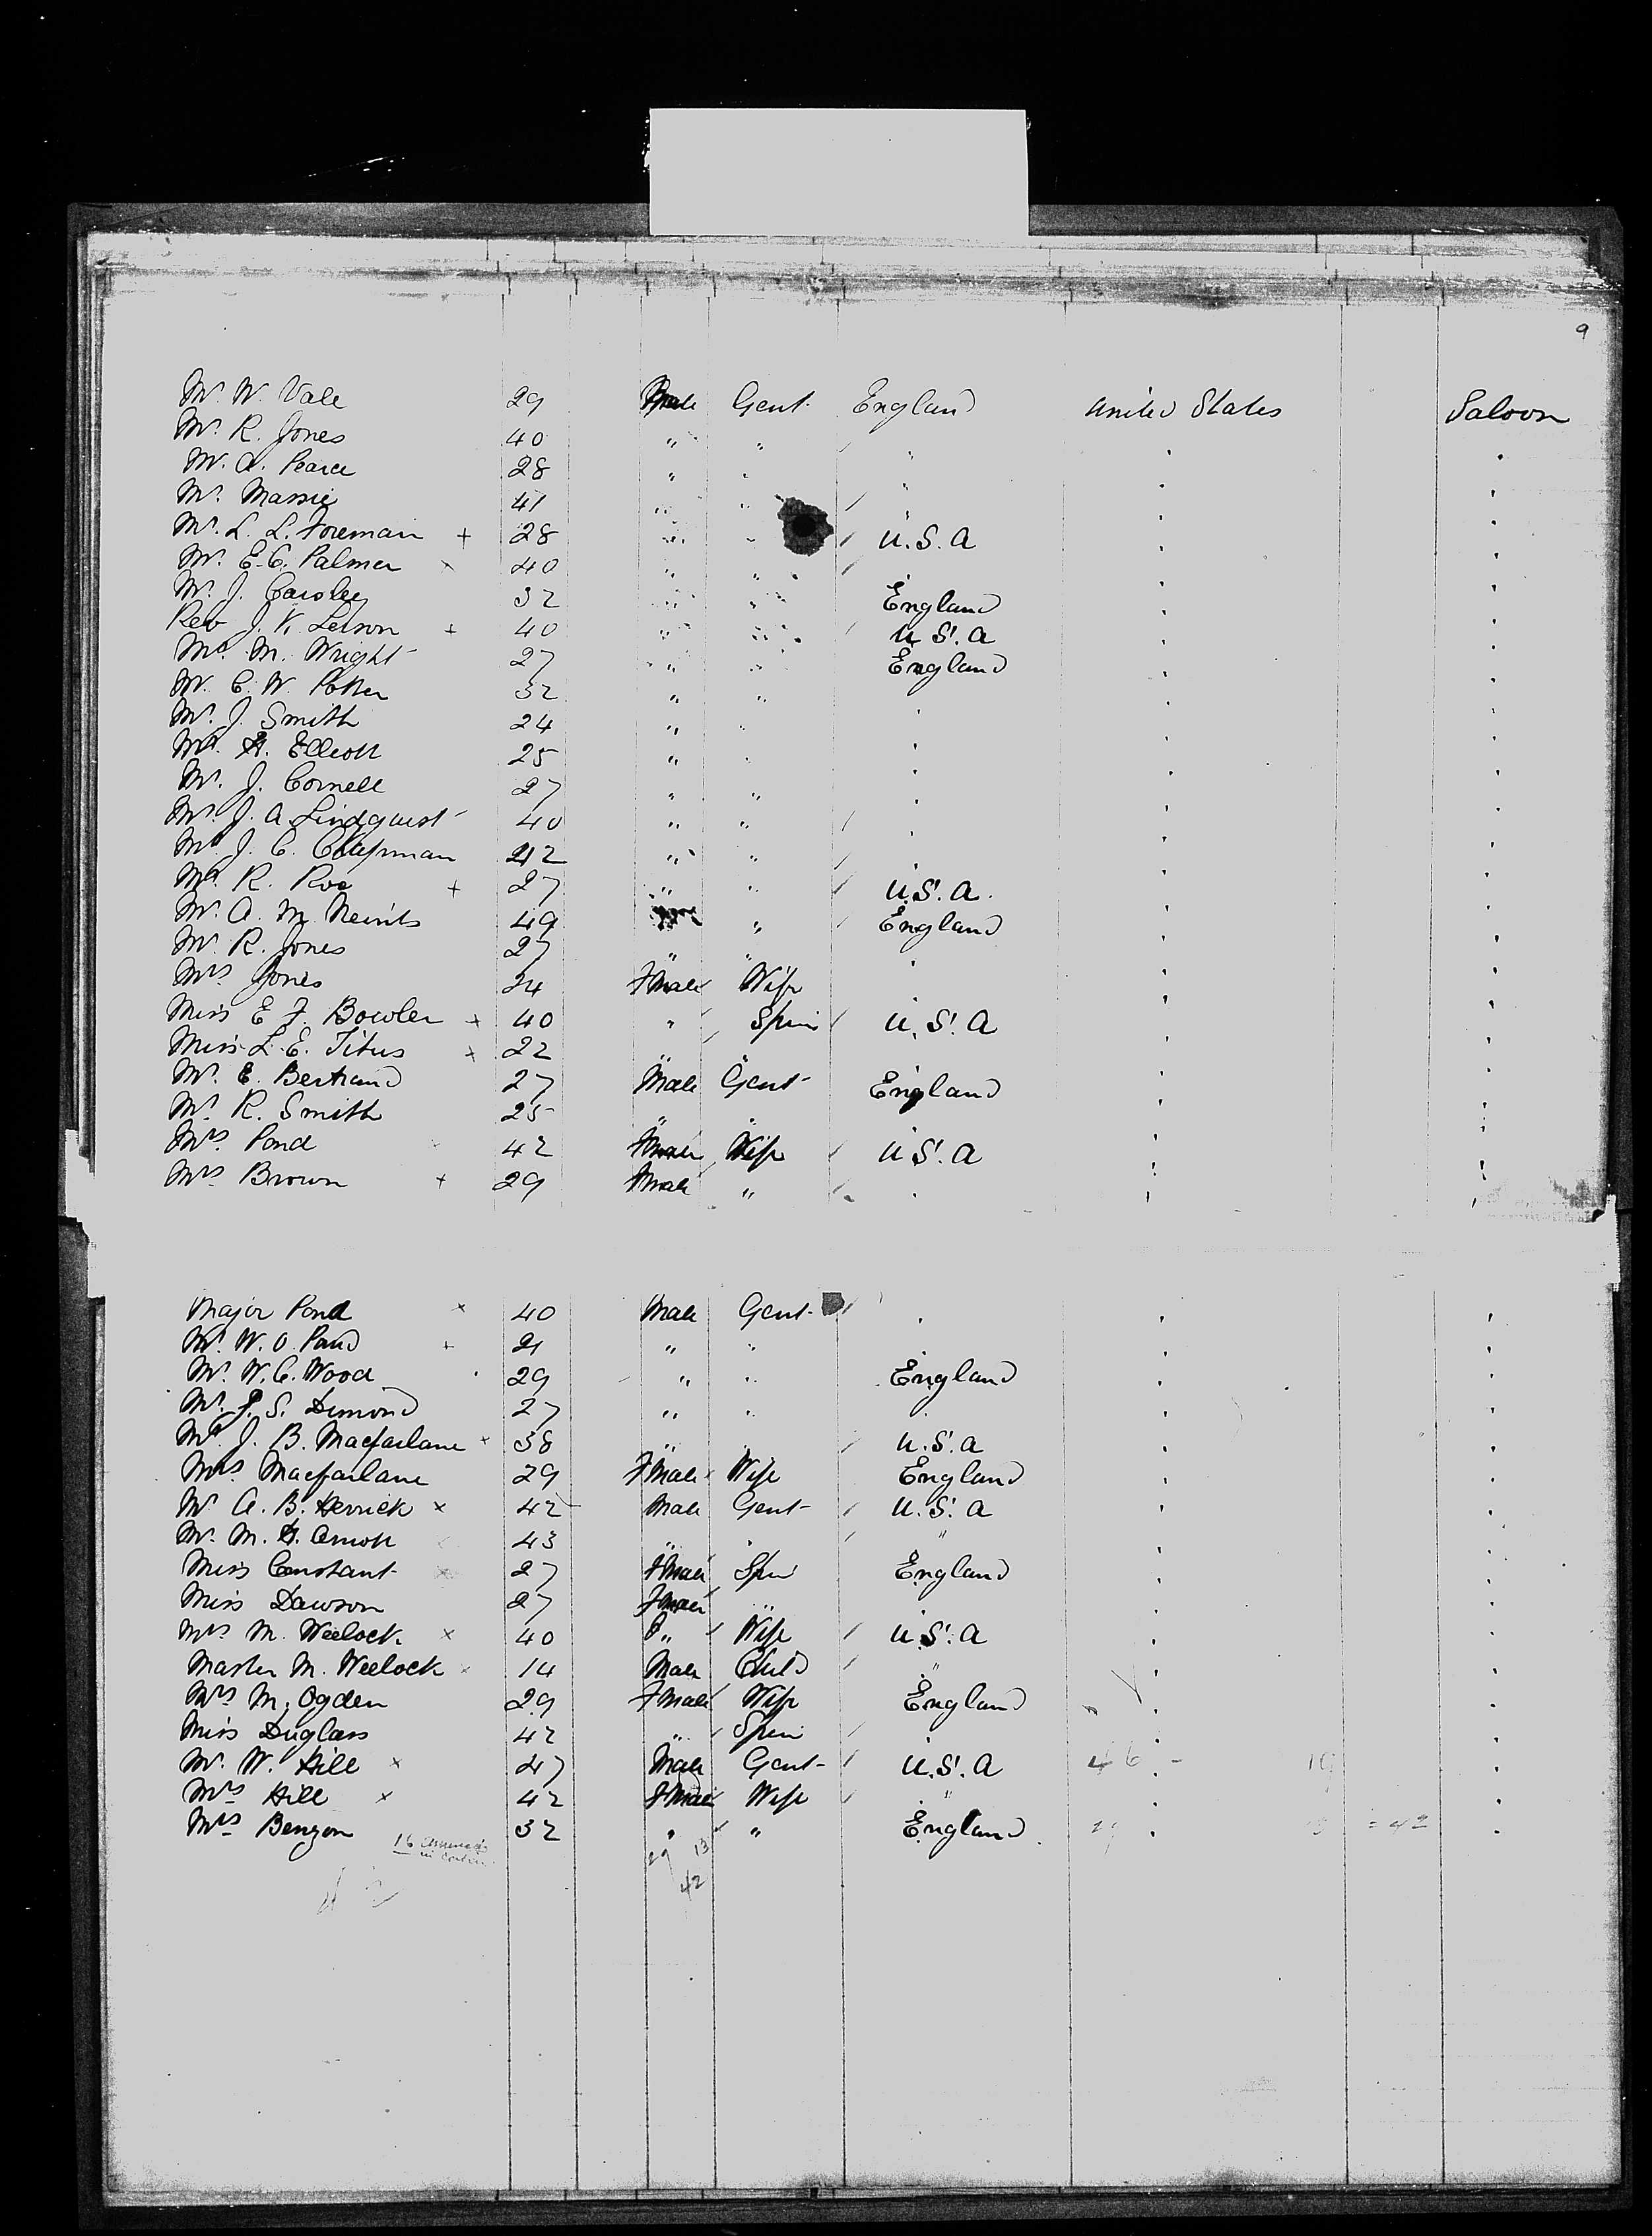 9
Mr. W. Vale 29 Male Gent England United States Saloon
Mr. R. Jones 40 " " " " "
Mr. A. Pearce 28 " " " " "
Mr. Massie 41 " " " " "
Mr. L. L. Foreman + 28 " " U.S.A " "
Mr. E. C. Palmer x 40 " " " " "
Mr. J. Cawley 32 " " England " "
Rev J. K. Lelson + 40 " " U.S.A " "
Mr. M. Wright 27 " " England " "
Mr. C. W. Potter 32 " " " " "
Mr. J. Smith 24 " " " " "
Mr. H. Elliott 25 " " " " "
Mr. J. Cornell 27 " " " " "
Mr. J. A. Lindquist 40 " " " " "
Mr. J. C. Chapman 42 " " " " "
Mr. R. Roe + 27 " " U.S.A. " "
Mr. A. M. Nevits 49 " " England " "
Mr. R. Jones 27 " " " " "
Mrs Jones 24 Fmale Wife " " "
Miss E F. Bowler + 40 " Spin U.S.A " "
Miss L. E. Titus x 22 " " " " "
Mr. E. Bertrand 27 Male Gent England " "
Mr. R. Smith 25 " " " " "
Mrs. Pond 42 Fmale Wife U.S.A " "
Mrs Brown + 29 Fmale " " " "
Major Pond x 40 Male Gent " " "
Mr. W. O. Pand + 21 " " " " "
Mr. W. C. Wood 29 " " England " "
Mr. J. S. Dimond 27 " " " " "
Mr. J. B. Macfarlane x 38 " " U.S.A " "
Mrs Macfarlane 29 Fmale Wife England " "
Mr A. B. Herrick x 42 Male Gent U.S.A " "
Mr. M. H. 43 " " " " "
Miss Constant x 27 Fmale Spin England " "
Miss Dawson 27 Fmale " " " "
Mrs M. Weelock x 40 F" Wife U.S.A " "
Master M. Weelock x 14 Male Child " " "
Mrs M. Ogden 29 Fmale Wife England " "
Miss Duglass 42 " Spin " " "
Mr. W. Hill x 47 Male Gent U.S.A " "
Mrs Hill x 42 Fmale Wife " " "
Mrs Benzon 32 " " England " = 42 "
16
29 13
42